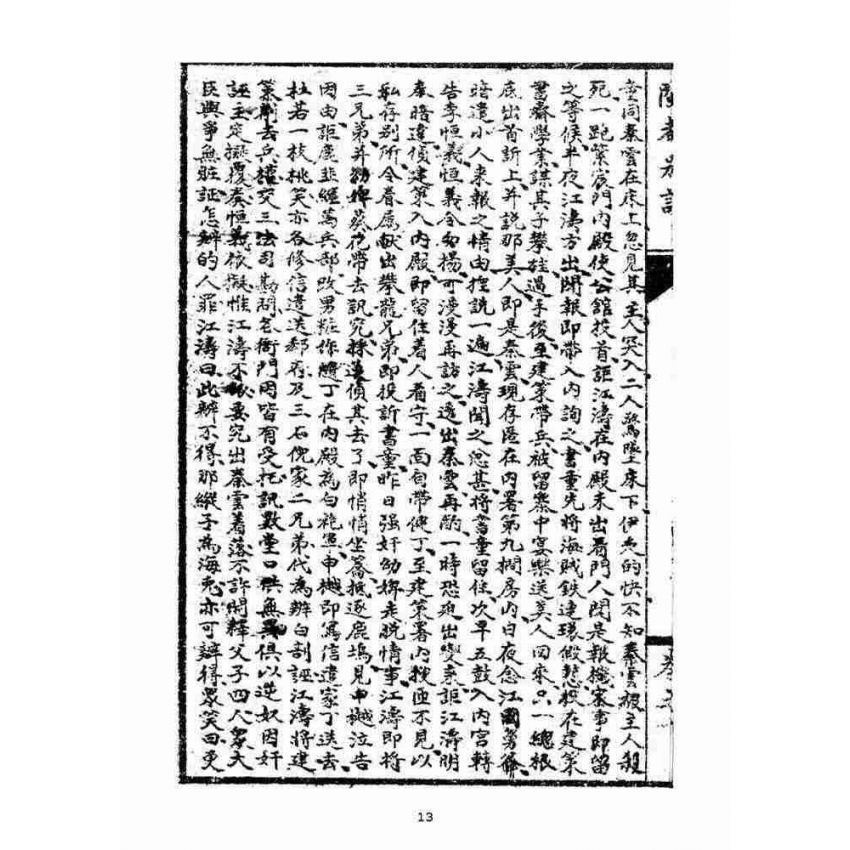 童同秦雲在床上忽見其主人突入二人驚墜床下伊走的快不知秦雲被主人殺
死一跑至宸門內殿使公館投首詎江濤在內殿未出看門人聞是報機密事即留
之等候半夜江濤方出聞報即帶入內詢之書童先將海賊鉄連環假慭投在建策
書齋學業謀其子攀桂過手後至建策帶兵被留寨中宴樂送美人回來只一總根
底出首訴上并說那美人即是秦雲現存匿在內署第九擱房內日夜念江國舅
暗遣小人來報之情由控說一遍江濤聞之忿甚將書童留住次早五鼓入內宮轉
告李恒義恒義令如揚可漫漫再訪之逸出秦雲再酌一時恐狼出變來詎江濤明
奏暗違優建策入內殿即留住着人看守一面旬帶健丁至建策署內搜匿不見以
私存別所令眷屬献出攀龍兄弟即投訴書童昨日强奸幼婢走脫情事江濤即將
三兄弟并幼婢葵花帶去訊究採遠偵其去了即悄悄坐篙抵逐鹿塢見申樾泣告
因由詎鹿韭繼萬兵部改男粧作隨丁在內殿為白袍軍申樾即寫信遣家丁送去
杜若一枝桃笑亦各修信遣送郝府及三石倪家二兄弟代為辨白剖誣江濤將建
策削去兵權交三法司勘問各衙門因皆有受托訊數堂口供無異俱以逆奴因奸
誣主定擬覆奏恒義依擬惟江濤不欲要究出秦雲着落不許開釋父子四人眾大
臣與爭無賍証怎辦的人罪江濤曰此辨不得那縱子為海兎亦可辨得眾笑曰更
13